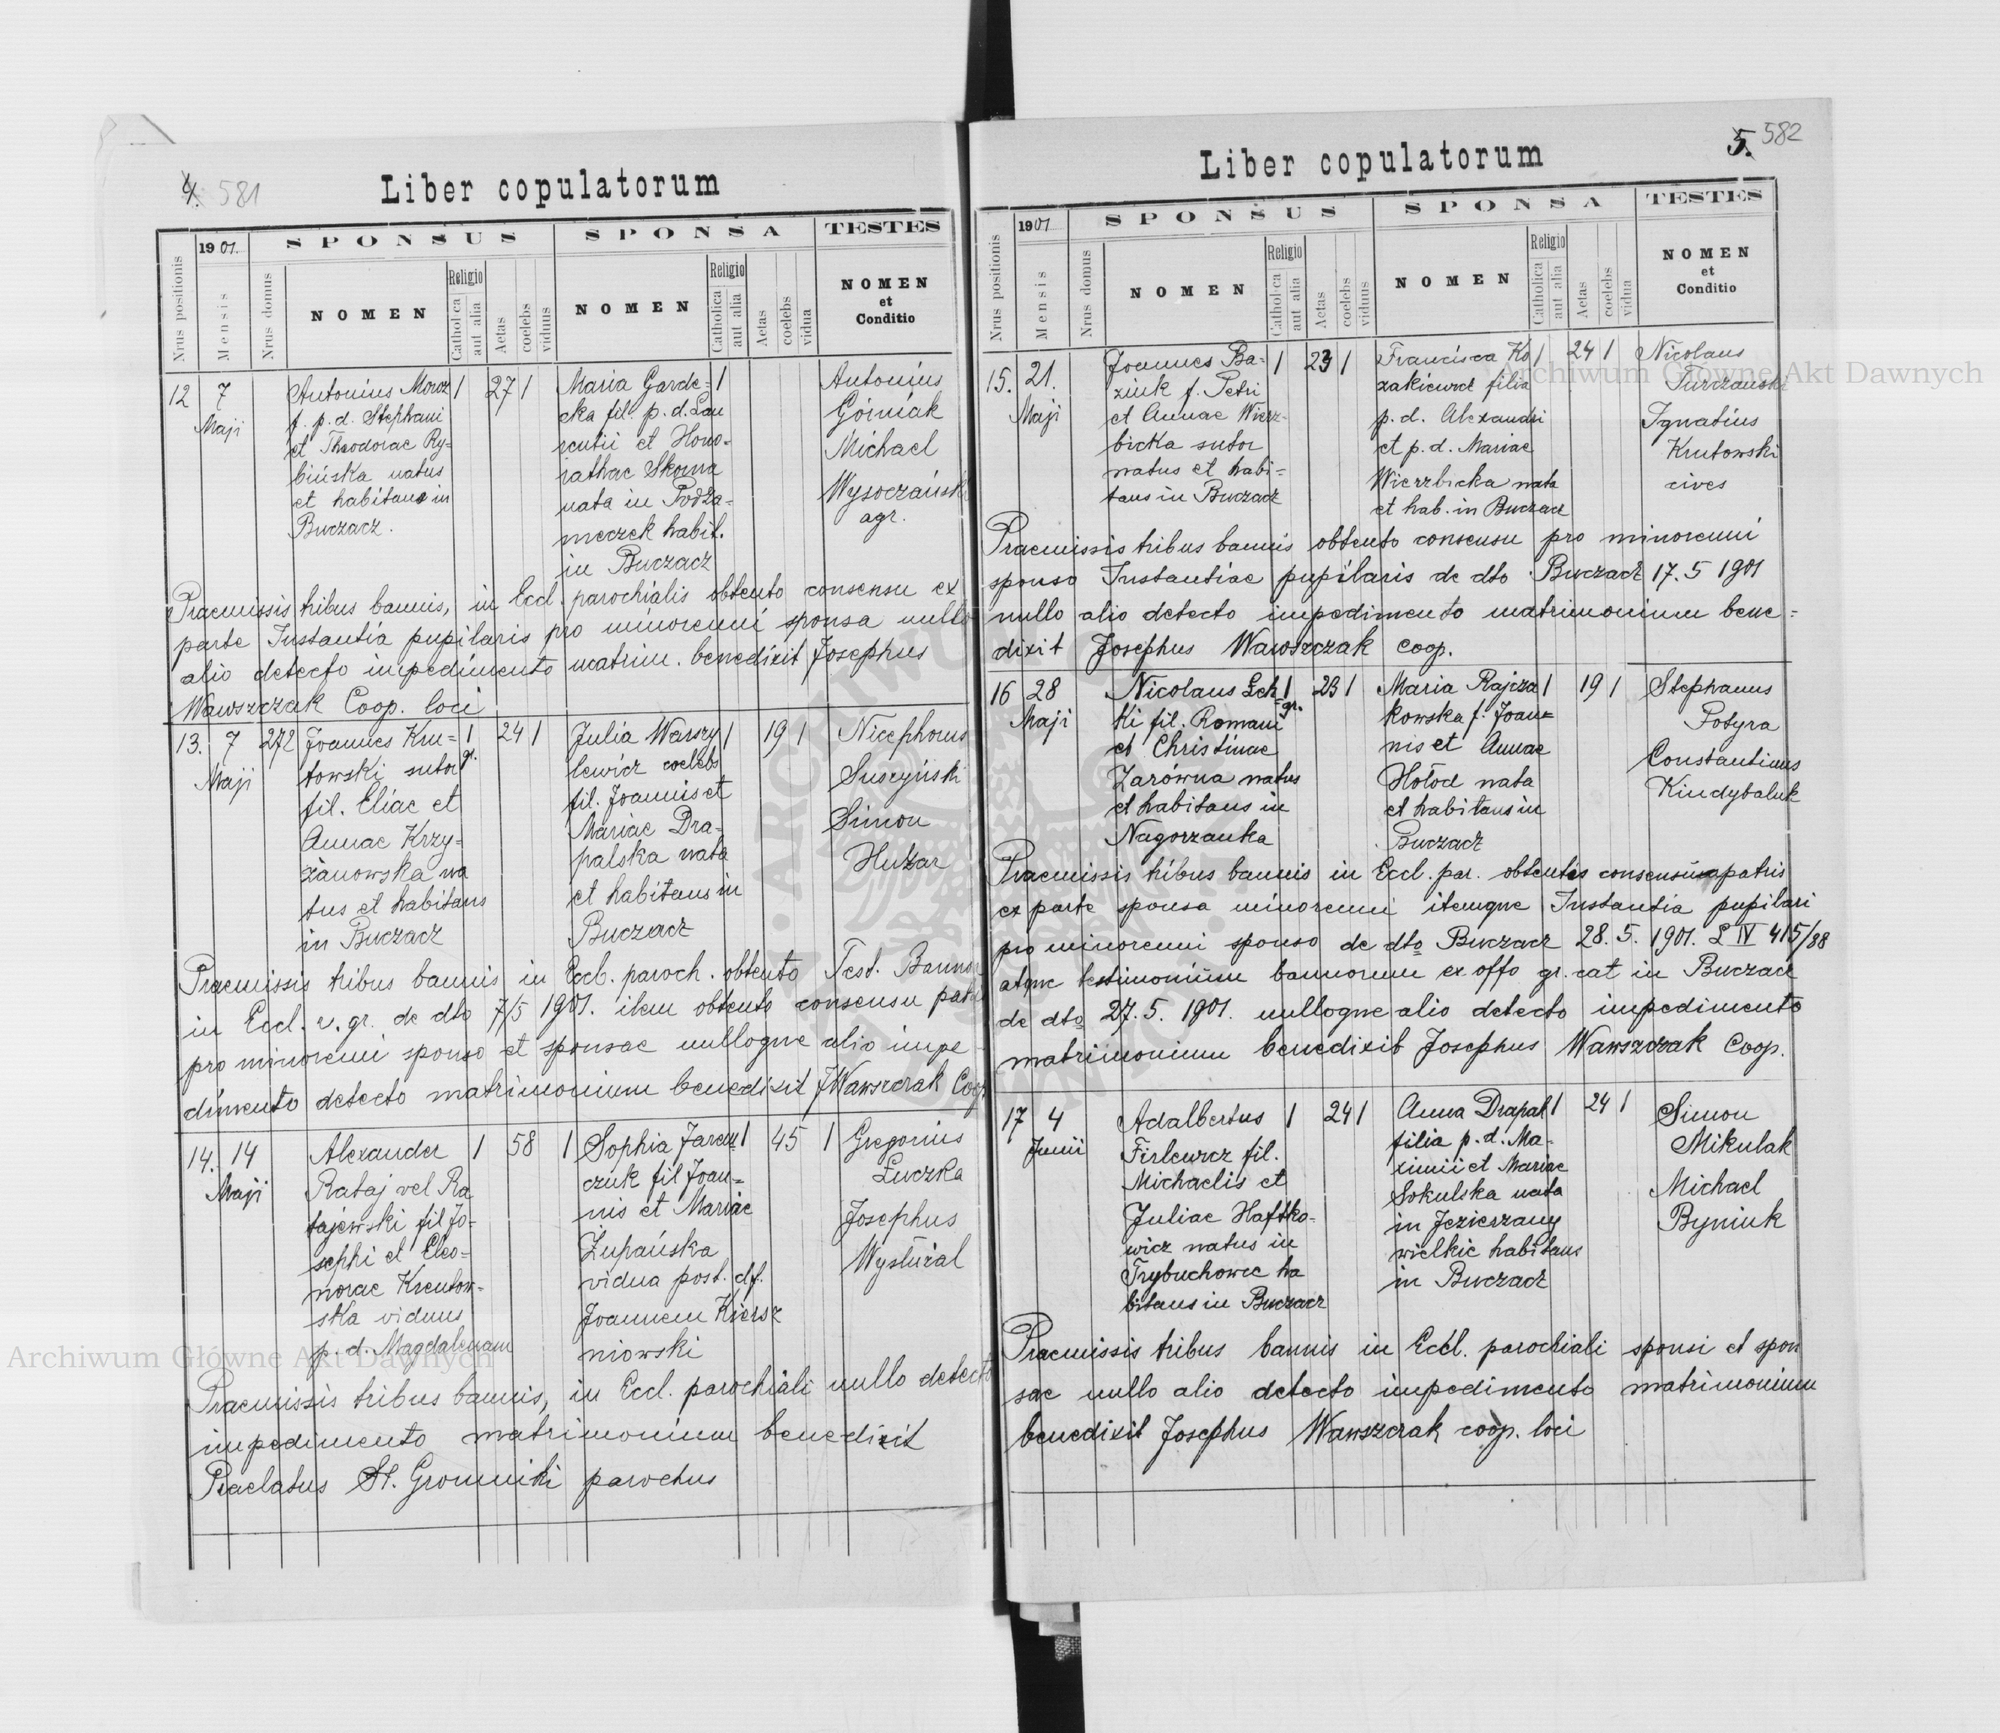 4. 581
Liber copulatorum
Nrus positionis
1901.
Mensis
Nrus domus
SPONSUS
NOMEN
Religio
Catholica
aut alia
Aetas
coelebs
viduus
SPONSA
NOMEN
Religio
Catholica
aut alia
Aetas
coelebs
vidua
TESTES
NOMEN
et
Conditio
12 7
Maji
Antonius Morcz 1 27 1
f. p. d. Stephani
et Theodorae Ry-
bińska natus
et habitans in
Buczacz.
Maria Garde- 1
cka fil. p. d. Lau
rentii et Hono-
rathae Skorna
nata in Podza-
meczek habit.
in Buczacz
Antonius
Górniak
Michael
Wysoczański
agr.
Praemissis tribus bannis, in Eccl. parochialis obtento consensu ex
parte Instantia pupilaris pro minorenni sponsa nullo
alio detecto impedimento matrim. benedixit Josephus
Wawszczak Coop. loci
13. 7 272
Maji
Joannes Kru- 1 24 1
towski sutor gr.
fil. Eliae et
Annae Krzy-
żanowska na
tus et habitans
in Buczacz
Julia Waszy 1 19 1
lewicz coelebs
fil. Joannis et
Mariae Dra-
palska nata
et habitans in
Buczacz
Nicephorus
Suszyński
Simon
Huzar
Praemissis tribus bannis in Eccl. paroch. obtento Test. Bannor
in Eccl. r. gr. de dto 7/5 1901. item obtento consensu patris
pro minorenni sponso et sponsae nulloque alio impe
dimento detecto matrimonium benedixit J Wawszczak Coop
14. 14
Maji
Alexander 1 58 1
Rataj vel Ra
tajewski fil Jo-
sephi et Eleo-
norae Krutow-
ska viduus
p. d. Magdalenam
Sophia Jarem 1 45 1
czuk fil Joan-
nis et Mariae
Żupańska
vidua post. df.
Joannem Kiersz
niowski
Gregorius
Łuczka
Josephus
Wystùral
Praemissis tribus bannis, in Eccl. parochiali nullo detecto
impedimento matrimonium benedixit
Praelatus St. Gromnicki parochus
5. 582
Liber copulatorum
Nrus positionis
1901
Mensis
Nrus domus
SPONSUS
NOMEN
Religio
Catholica
aut alia
Aetas
coelebs
viduus
SPONSA
NOMEN
Religio
Catholica
aut alia
Aetas
coelebs
vidua
TESTES
NOMEN
et
Conditio
15. 21.
Maji
Joannes Ba- 1 23 1
ziuk f. Petri
et Annae Wierz-
bicka sutor
natus et habi-
tans in Buczacz
Francisca Ko 1 24 1
zakiewicz filia
p. d. Alexandri
et p. d. Mariae
Wierzbicka nata
et hab. in Buczacz
Nicolaus
Turczański
Ignatius
Krutowski
cives
Praemissis tribus bannis obtento consensu pro minorenni
sponso Instantiae pupilaris de dto Buczacz 17.5 1901
nullo alio detecto impedimento matrimonium bene-
dixit Josephus Wawszczak coop.
16 28
Maji
Nicolaus Łek 1 23 1
ki fil. Romani gr.
et Christinae
Zarówna natus
et habitans in
Nagorzanka
Maria Rajcza 1 19 1
kowska f. Joan-
nis et Annae
Hołod nata
et habitans in
Buczacz
Stephanus
Potyra
Constantinus
Kindybaluk
Praemissis tribus bannis in Eccl. par. obtentis consensu patris
ex parte sponsa minorenni itemque Instantia pupilari
pro minorenni sponso de dto Buczacz 28.5. 1901. L IV 415/88
atque testimonium bannorum ex offo gr. cat in Buczacz
de dto 27.5. 1901. nulloque alio detecto impedimento
matrimonium benedixit Josephus Wawszczak Coop.
17 4
Junii
Adalbertus 1 24 1
Firlewicz fil.
Michaelis et
Juliae Haftko-
wicz natus in
Trybuchowce ha
bitans in Buczacz
Anna Drapak 1 24 1
filia p. d. Ma-
ximii et Mariae
Sokulska nata
in Jezieszany
wielkie habitans
in Buczacz
Simon
Mikulak
Michael
Byniuk
Praemissis tribus bannis in Eccl. parochiali sponsi et spon
sae nullo alio detecto impedimento matrimonium
benedixit Josephus Wawszczak coop. loci
Archiwum Główne Akt Dawnych
Archiwum Główne Akt Dawnych